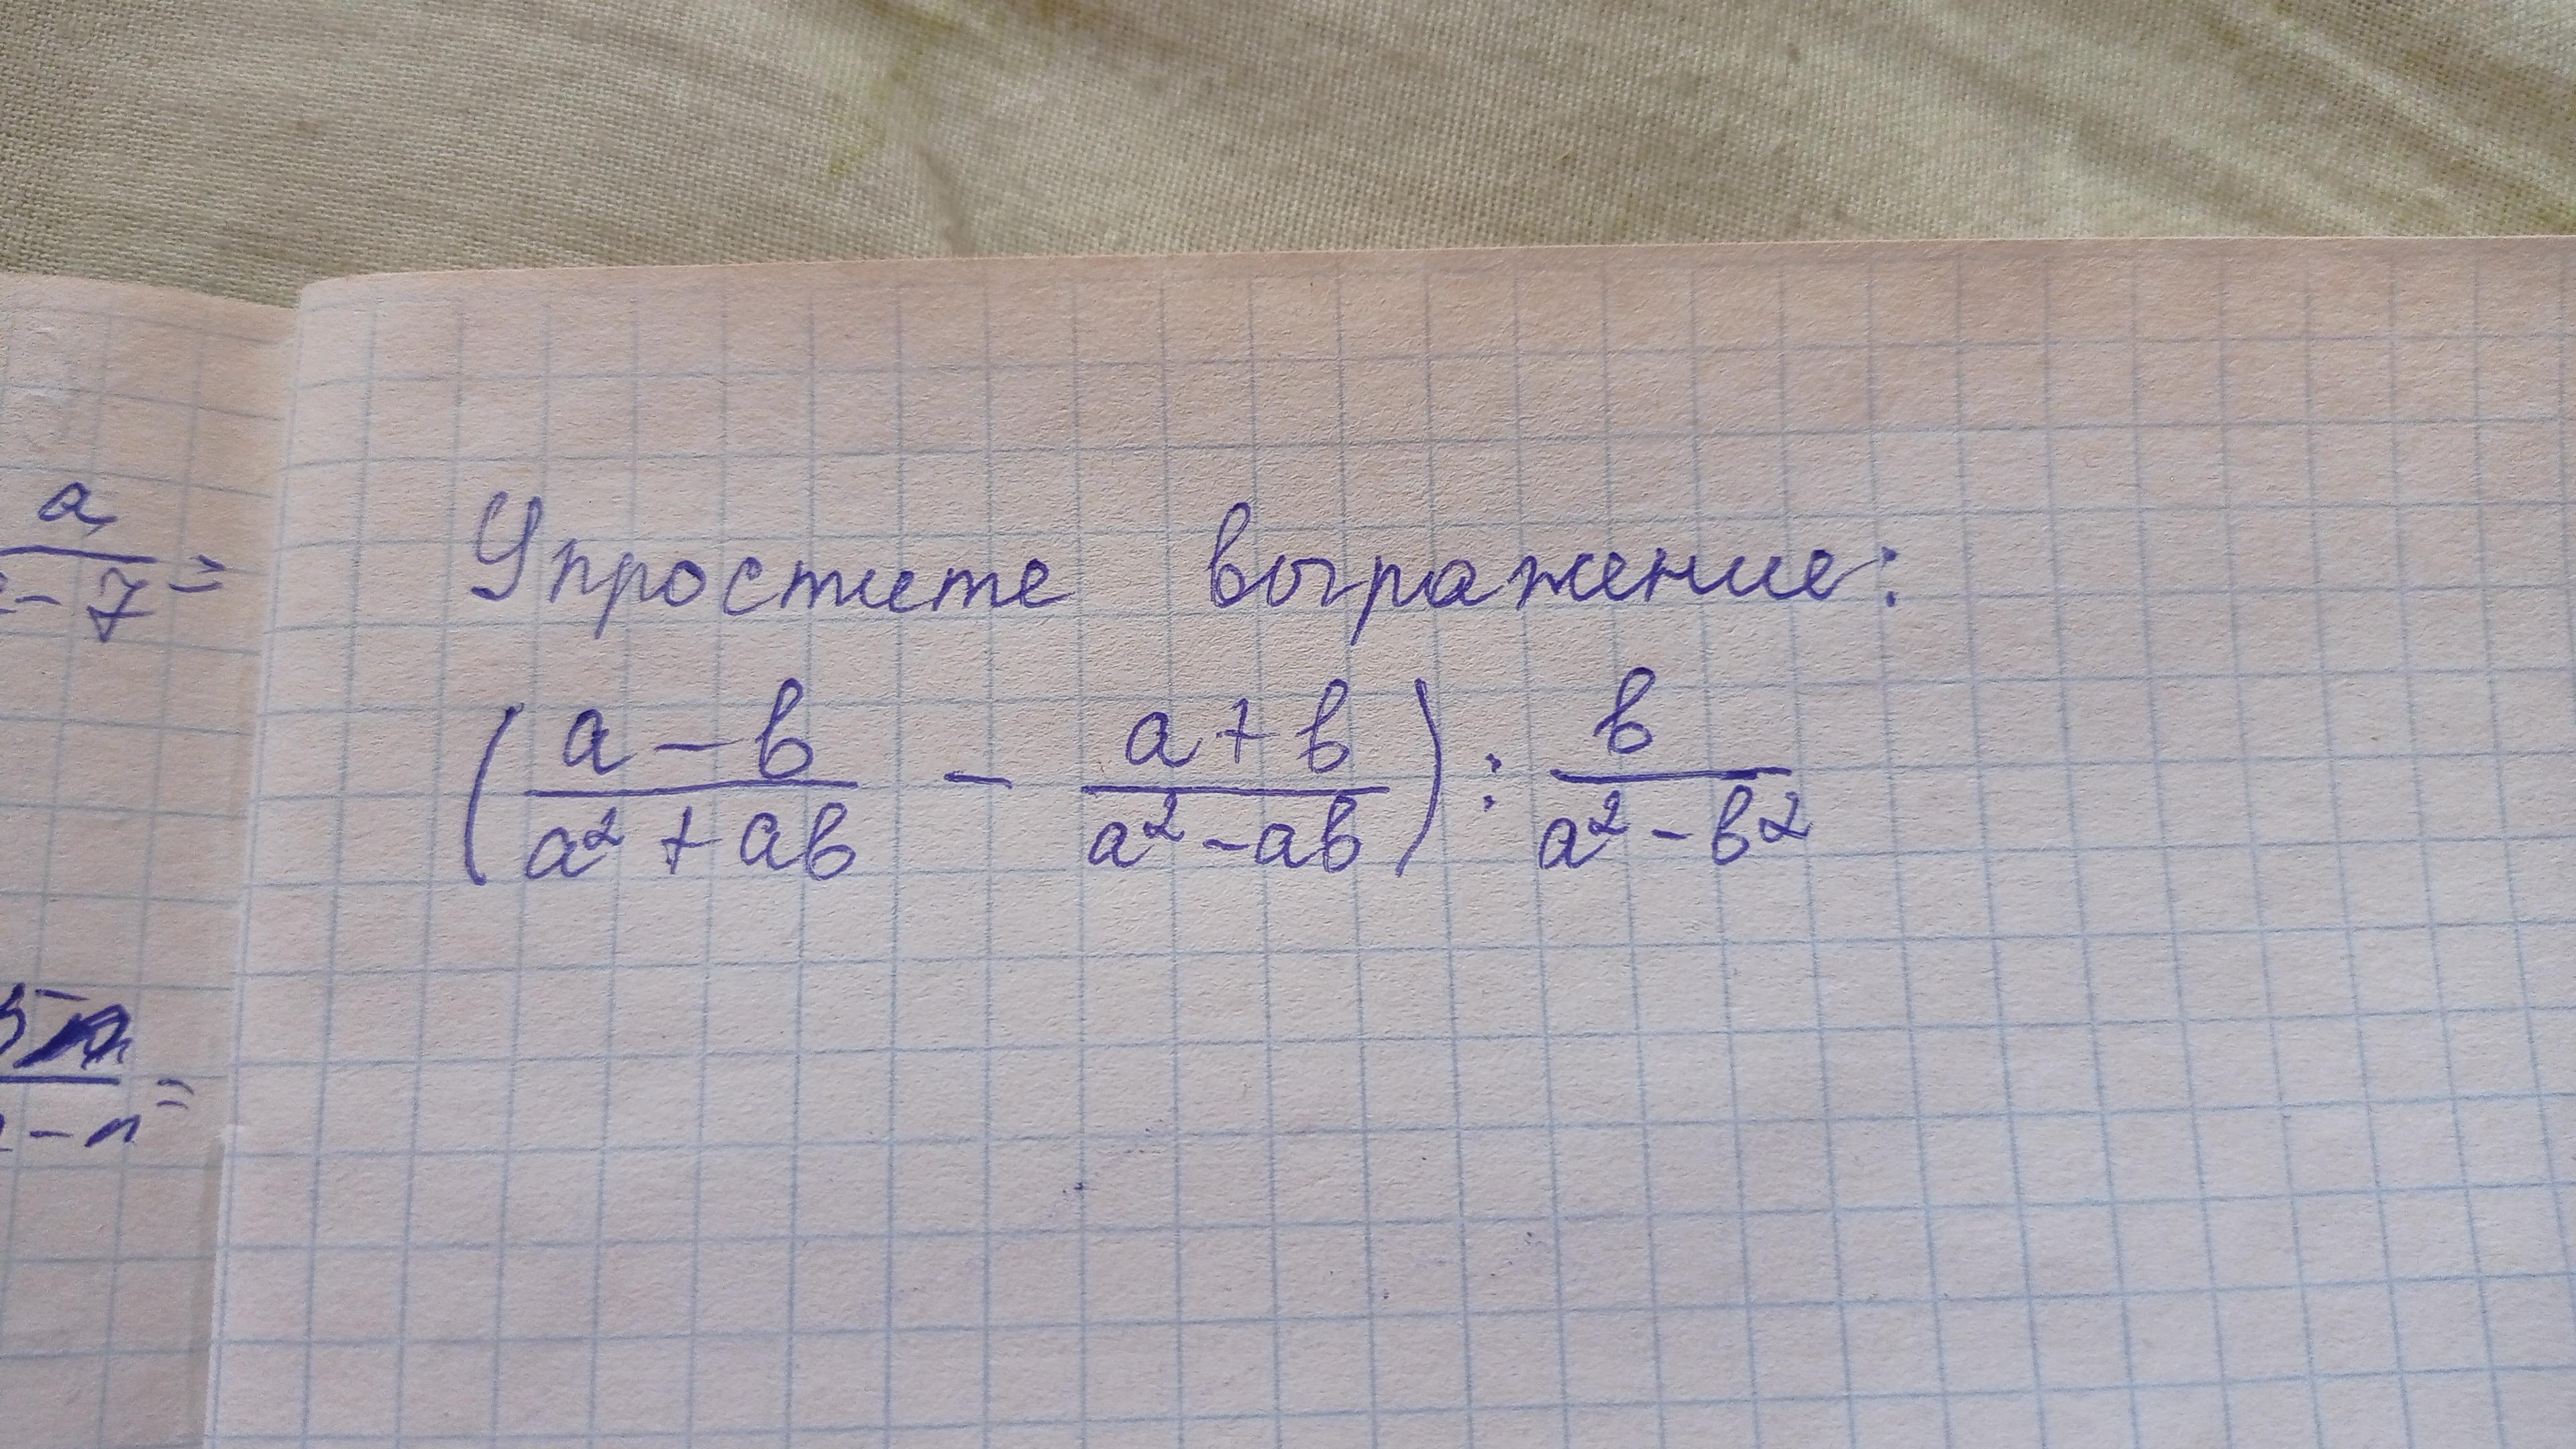 a
- 7 =
Упростите выражение:
(a - b / a² + ab - a + b / a² - ab) : b / a² - b²
5
- n =